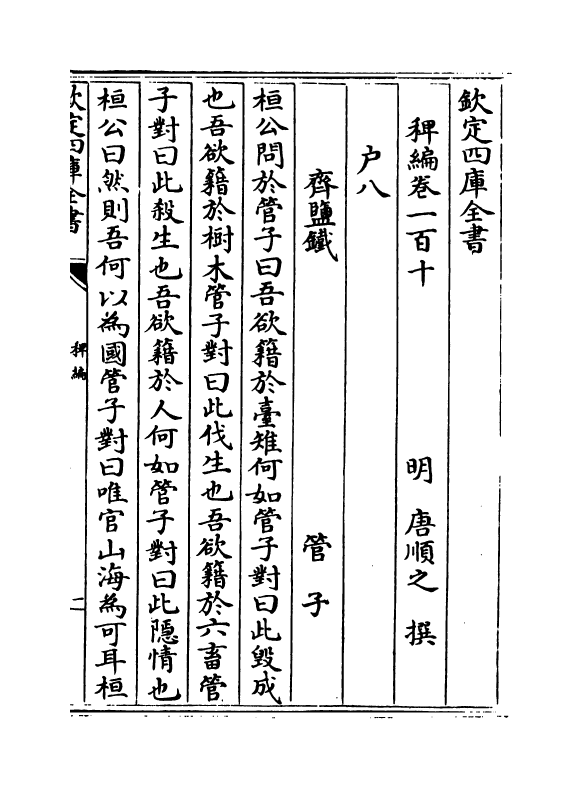 欽定四庫全書
稗編卷一百十
明　唐順之　撰
户八
齊鹽鐵　管子
桓公問於管子曰吾欲籍於臺雉何如管子對曰此毁成
也吾欲籍於樹木管子對曰此伐生也吾欲籍於六畜管
子對曰此殺生也吾欲籍於人何如管子對曰此隱情也
桓公曰然則吾何以為國管子對曰唯官山海為可耳桓
欽定四庫全書
稗編